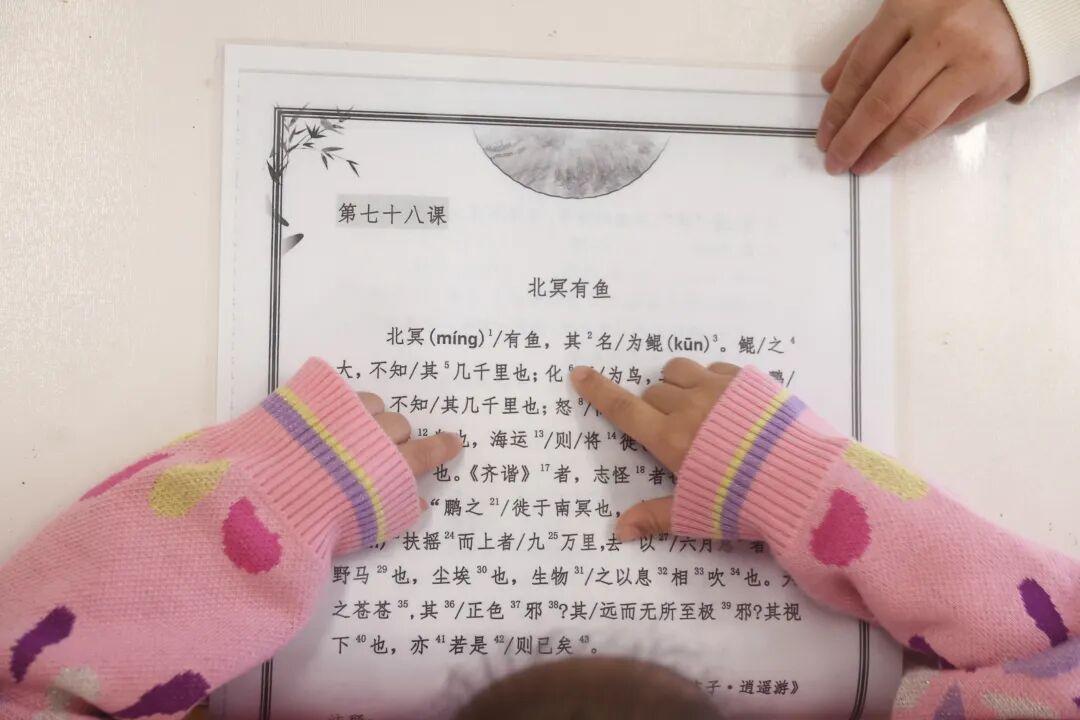 第七十八课
北冥有鱼
北冥(míng)¹/有鱼，其²名/为鲲(kūn)³。鲲/之⁴
大，不知/其⁵几千里也；化⁶/为鸟，
不知/其几千里也；怒⁸/
¹²也，海运¹³/则/将¹⁴徙
也。《齐谐》¹⁷者，志怪¹⁸者
“鹏之²¹/徙于南冥也，
扶摇²⁴而上者/九²⁵万里，去 以²⁷/六月 者
野马²⁹也，尘埃³⁰也，生物³¹/之以息³²相³³吹³⁴也。天
之苍苍³⁵，其³⁶/正色³⁷邪³⁸？其/远而无所至极³⁹邪？其视
下⁴⁰也，亦⁴¹若是⁴²/则已矣⁴³。
子·逍遥游》